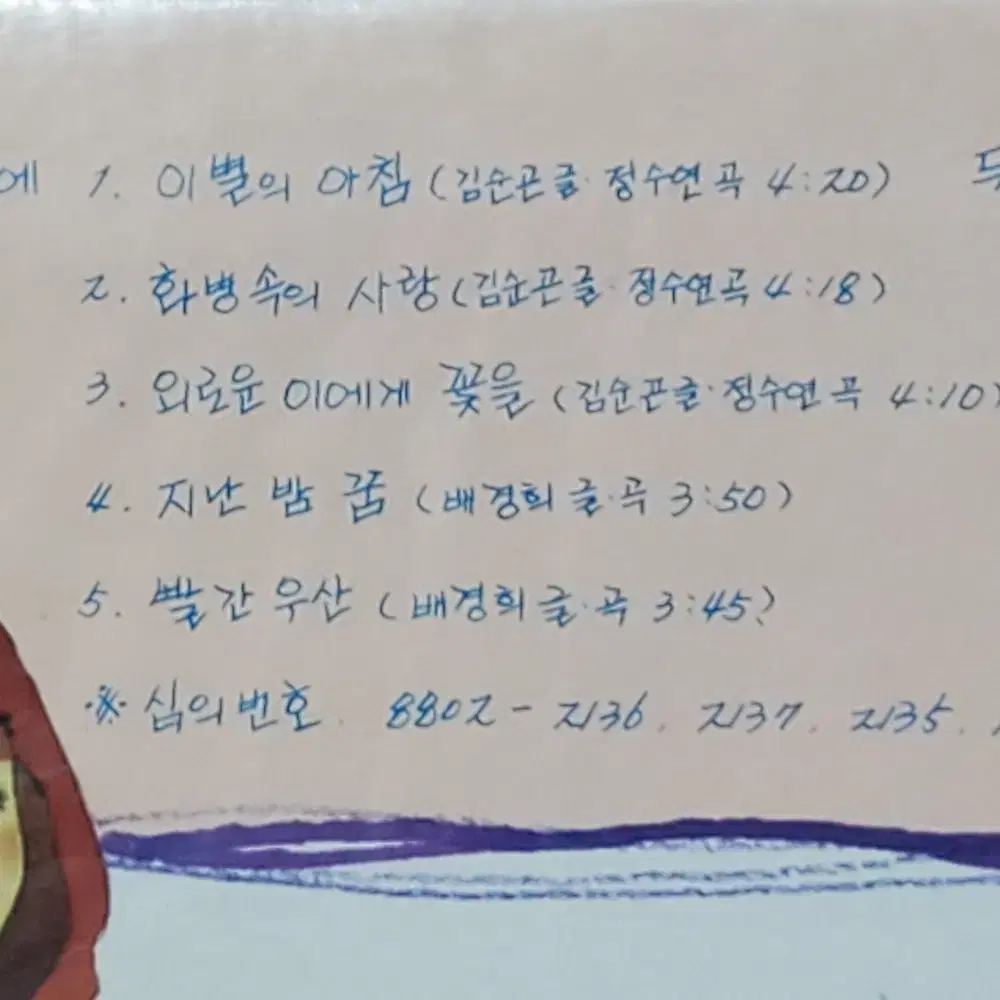 에 1. 이별의 아침 (김순곤 글·정수연 곡 4:20)
2. 화병속의 사랑 (김순곤 글·정수연 곡 4:18)
3. 외로운 이에게 꽃을 (김순곤 글·정수연 곡 4:10)
4. 지난 밤 꿈 (배경희 글·곡 3:50)
5. 빨간 우산 (배경희 글·곡 3:45)
※ 심의번호. 8802-2136. 2137. 2135.